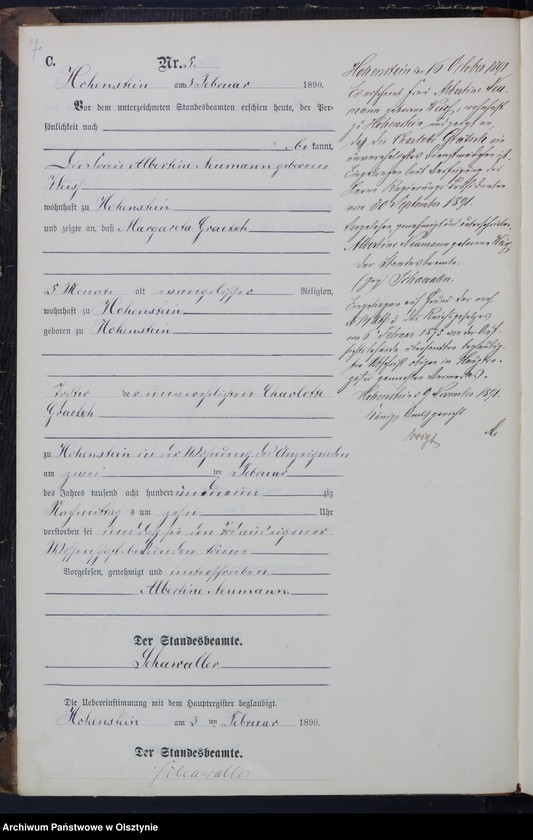 7.
C.
Nr. 5.
Hohenstein am 3 Februar 1890.
Vor dem unterzeichneten Standesbeamten erschien heute, der Per-
sönlichkeit nach
be kannt,
Die Frau Albertine Neumann geborene
Weiß
wohnhaft zu Hohenstein
und zeigte an, daß Margareta Graetsch
5 Monate alt evangelischer Religion,
wohnhaft zu Hohenstein
geboren zu Hohenstein
Tochter der unverehelichten Charlotte
Graetsch
zu Hohenstein in der Wohnung der Anzeigenden
am zwei ten Februar
des Jahres tausend acht hundert und neun zig
Nachmittags um zehn Uhr
verstorben sei und daß sie den Tod aus eigener
Wissenschaft bekunden könne
Vorgelesen, genehmigt und unterschrieben
Albertine Neumann.
Der Standesbeamte.
Schawaller
Die Uebereinstimmung mit dem Hauptregister beglaubigt.
Hohenstein am 3 ten Februar 1890.
Der Standesbeamte.
Schawaller
Hohenstein 16 October 1891
Es erscheint Frau Albertine Neu-
mann geborene Weiß, wohnhaft
zu Hohenstein, und zeigt an,
daß die Charlotte Graetsch ein
unverehelichtes Dienstmädchen ist.
Eingetragen laut Verfügung des
Herrn Regierungs Präsidenten
vom 30 September 1891.
Vorgelesen, genehmigt und unterschrieben
Albertine Neumann geborene Weiß
Der Standesbeamte.
(gez) Schawaller.
Eingetragen auf Grund der nach
des Reichsgesetzes
vom 6 Februar 1875 von der Auf-
sichtsbehörde übersandten beglaubig-
ten Abschrift obigen im Hauptre-
gister gemachten Vermerkes.
Hohenstein 9 November 1891.
Königl. Amtsgericht
Voigt
Archiwum Państwowe w Olsztynie